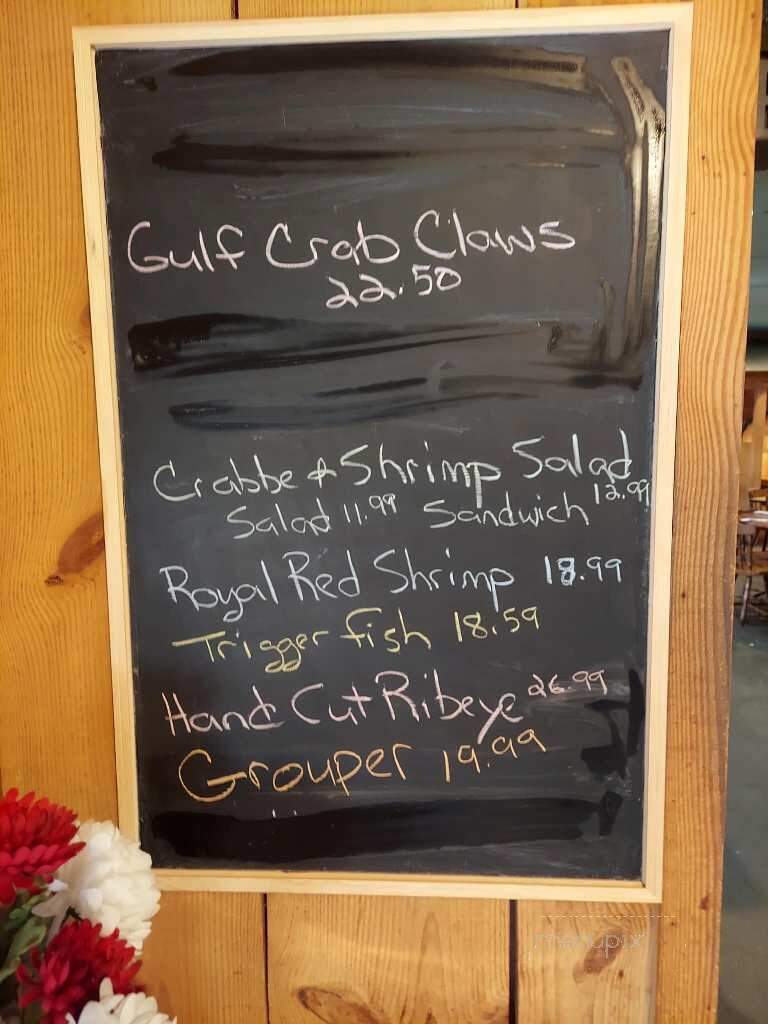 Gulf Crab Claws
22.50
Crabbe & Shrimp Salad
Salad 11.99 Sandwich 12.99
Royal Red Shrimp 18.99
Trigger fish 18.59
Hand Cut Ribeye 26.99
Grouper 19.99
menupix